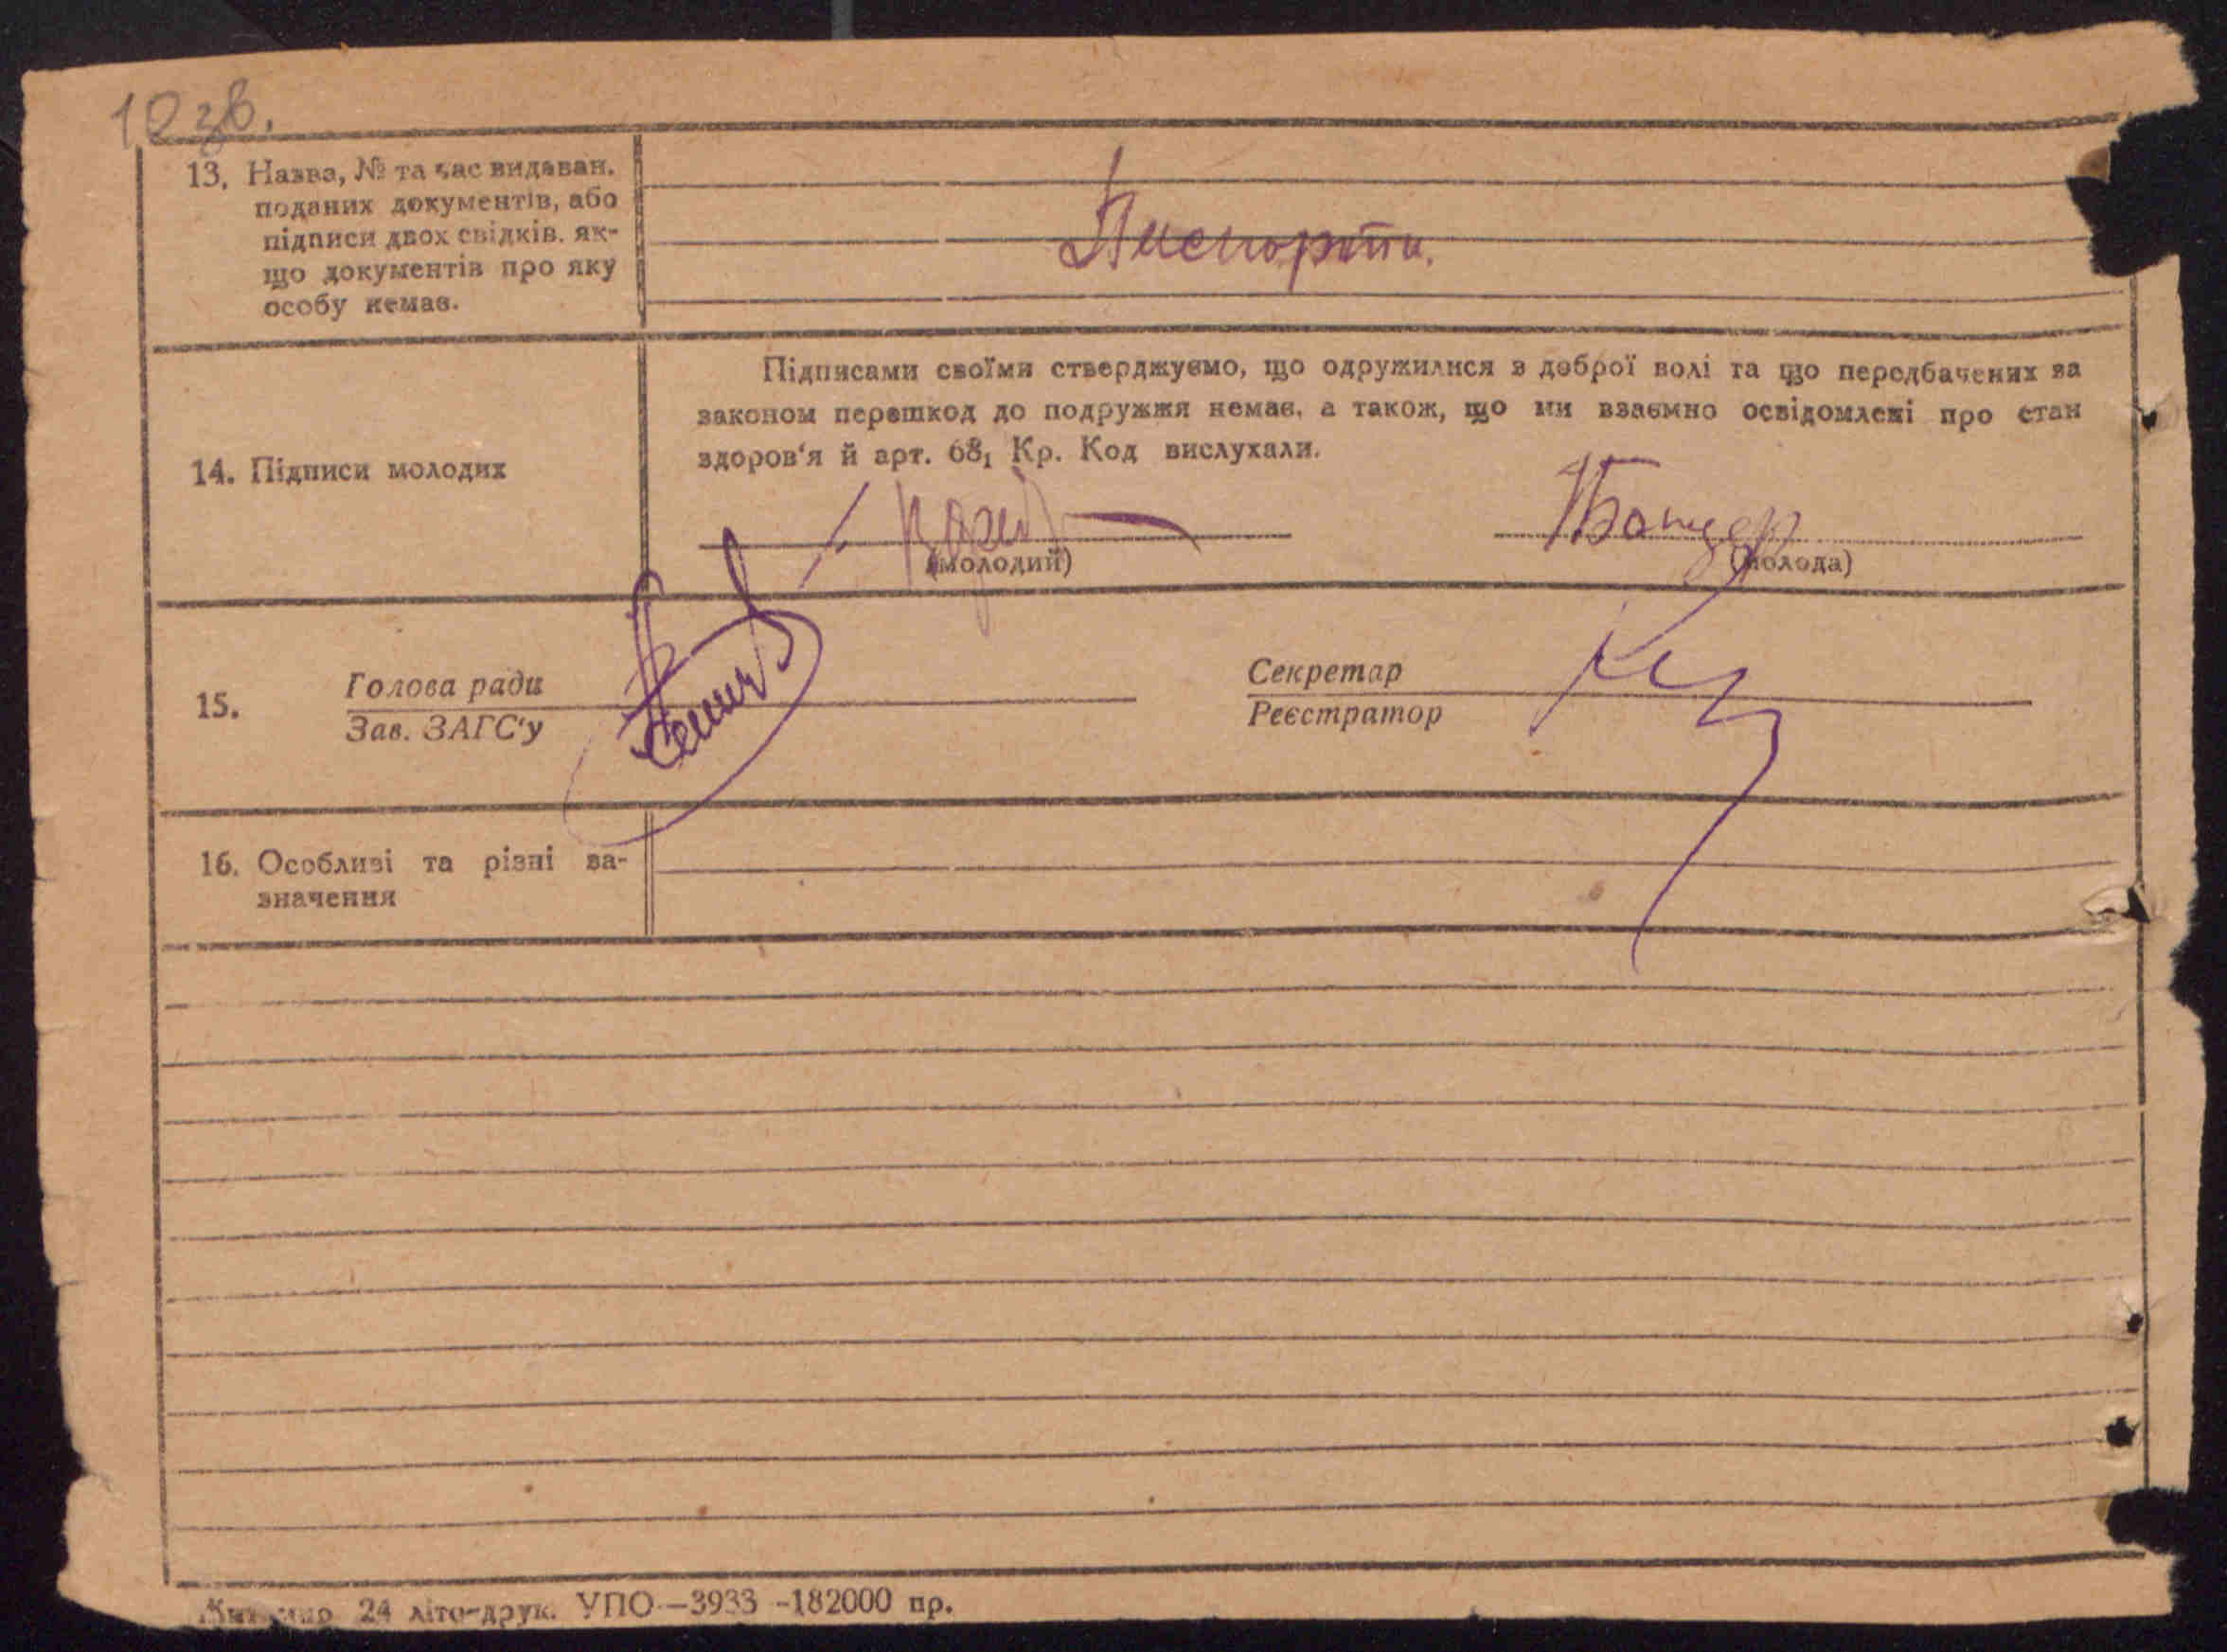 10 зв.
13. Назва, № та час видаван.
поданих документів, або
підписи двох свідків. як-
що документів про яку
особу немає.
Паспорти.
14. Підписи молодих
Підписами своїми стверджуємо, що одружилися з доброї волі та що передбачених за
законом перешкод до подружжя немає, а також, що ми взаємно освідомлені про стан
здоров'я й арт. 68₁ Кр. Код вислухали.
(молодий)
(молода)
15.
Голова ради
Зав. ЗАГС'у
Секретар
Реєстратор
16. Особливі та різні за-
значення
24 літо-друк. УПО—3933 -182000 пр.